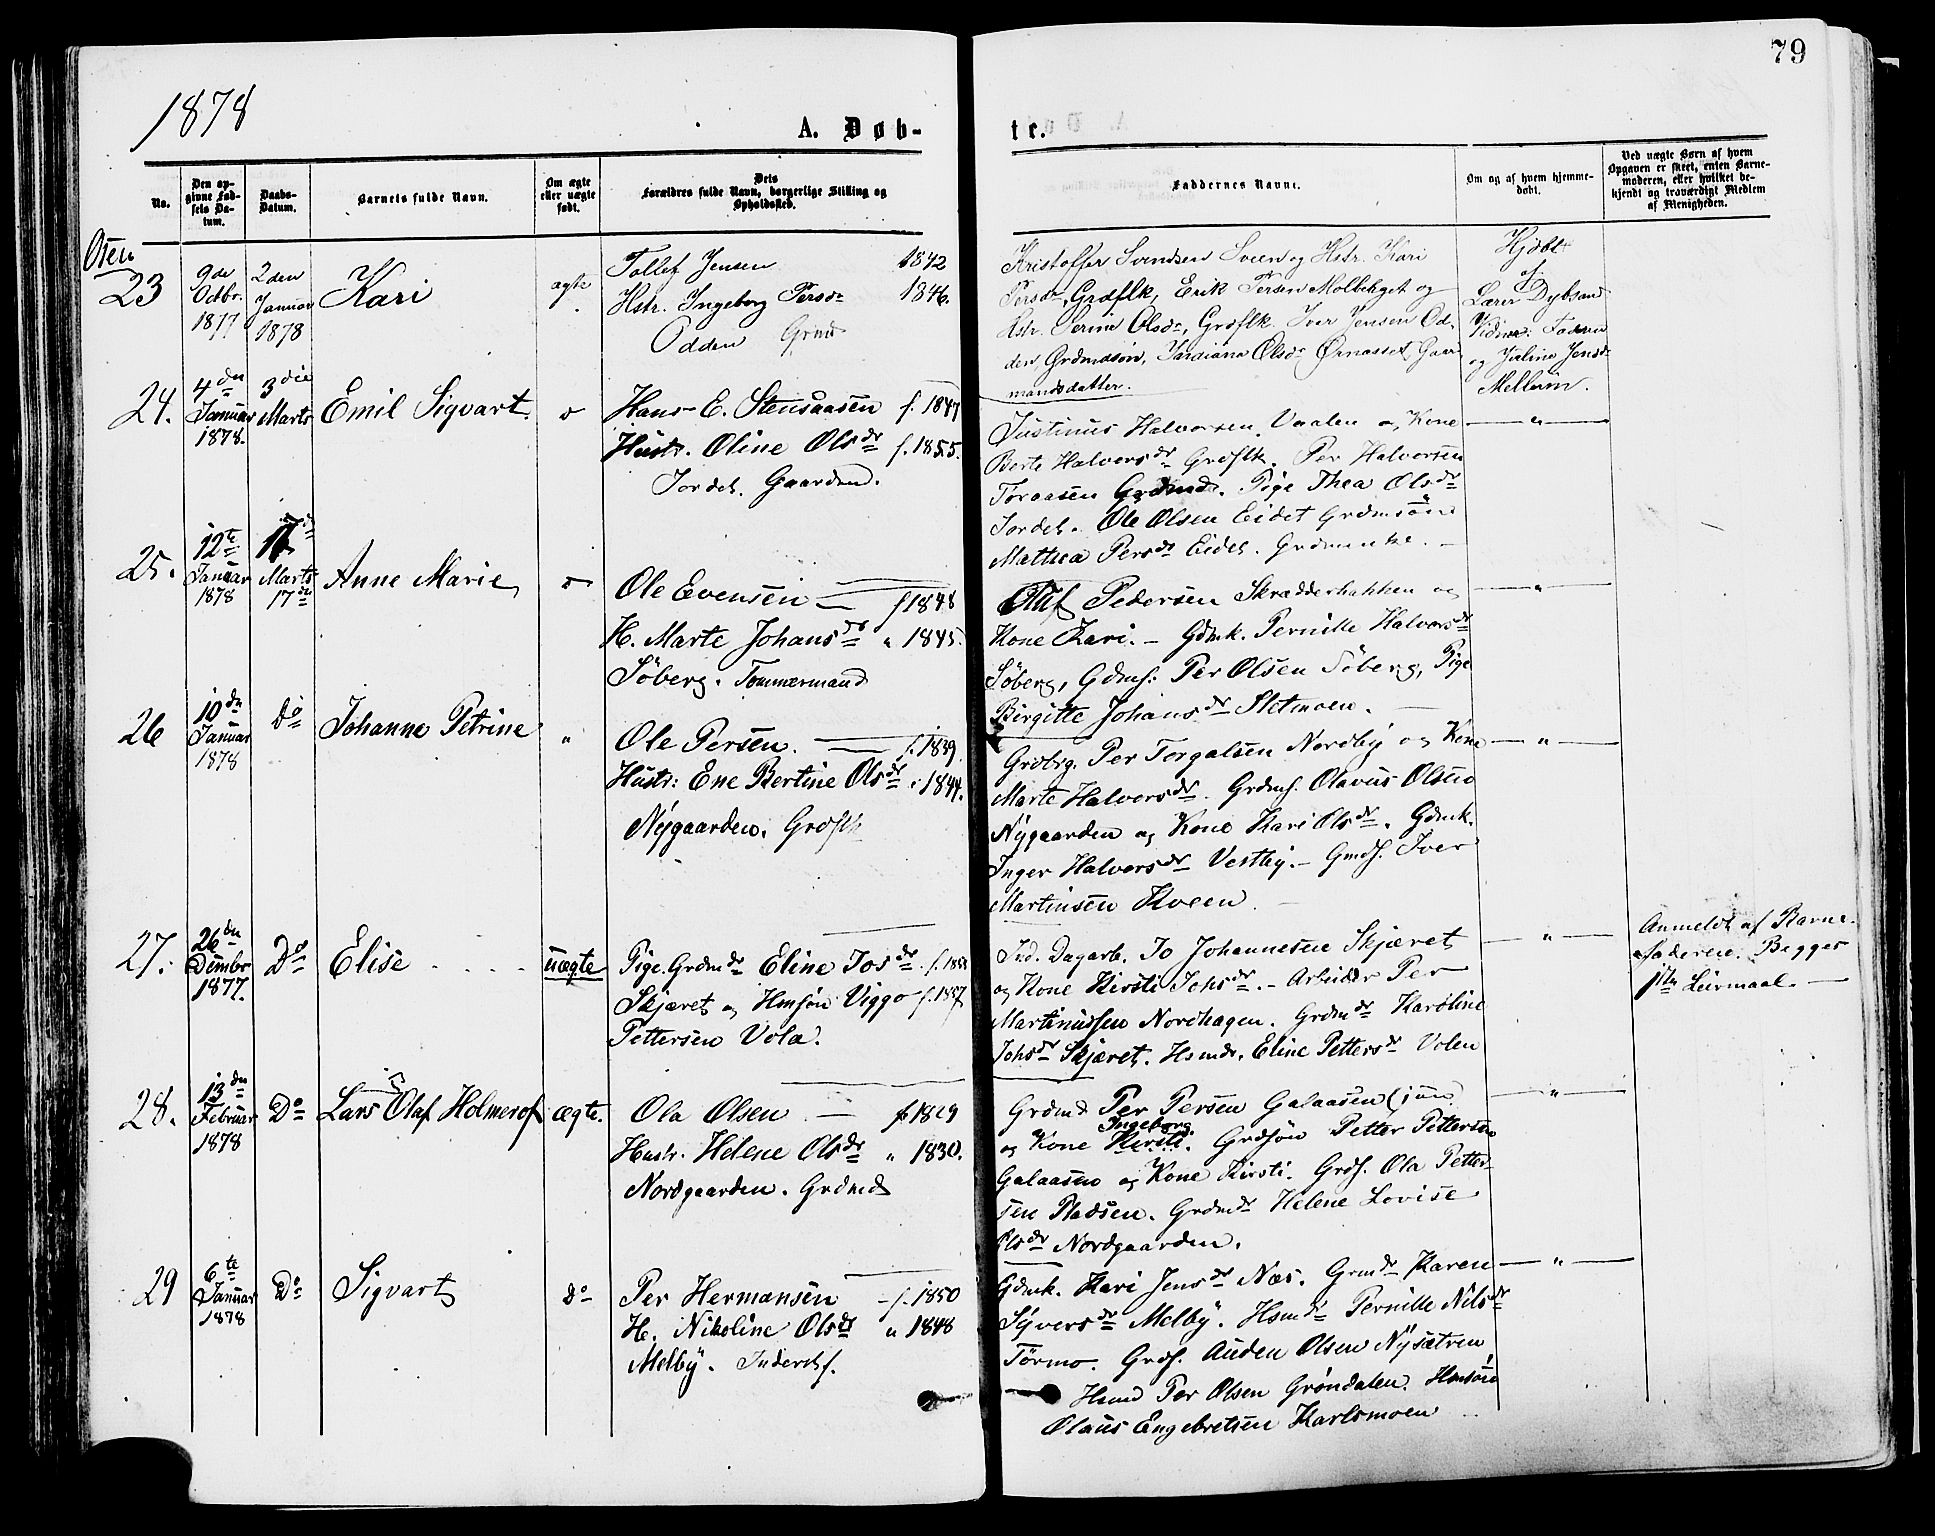 79
1878
A. Døb-
te.
No.
Den opgivne Fødsels Datum.
Daabs-Datum.
Barnets fulde Navn.
Om ægte eller uægte født.
Dets Forældres fulde Navn, borgerlige Stilling og Opholdssted.
Faddernes Navne.
Om og af hvem hjemmedøbt.
Ved uægte Børn af hvem Opgaven er skeet, enten Barnemoderen, eller hvilket bekjendt og troværdigt Medlem af Menigheden.
Osen
23
9de Octbr. 1877
2den Januar 1878
Kari
ægte
Tollef Jensen 1842
Hstr. Ingeborg Persdr 1846.
Odden Grmd
Kristoffer Svendsen Sveen og Hstr. Kari
Persdr, Grdflk, Erik Persen Molbekget og
Hstr. Serine Olsdr, Grdflk. Iver Jensen Od-
den Grdmdsøn, Olsdr Ørnasset, Gaar-
mandsdatter.
Hjdbt
af
Lærer Dybsand
Vidner: Faderen
og Juline Jensdr
Mellem.
24.
4de Januar 1878.
3die Marts
Emil Sigvart.
Hans E. Stensaasen f. 1847
Hustr. Oline Olsdr f. 1855.
Jordet. Gaarden.
Justinus Halvorsen, Vaalen og Kone
Berte Halvorsdr Grdflk. Per Halvorsen
Toraasen Grdmd. Pige Thea Olsdr
Jordet. Ole Olsen Eidet Grdmsøn
Mathea Persdr Eidet. Grdmands
— " —
25.
12te Januar 1878
Marts 17de
Anne Marie
Ole Evensen f 1848
H. Marte Johansdr " 1845.
Søberg. Tømmermand
Oluf Pedersen Skrædderbakken og
Kone Kari. — Gdmk. Pernille Halvorsdr
Søberg, Gdms: Per Olsen Søberg, Pige
Birgitte Johansdr Sletmoen.
— " —
26
10de Januar 1878
Do
Johanne Petrine
"
Ole Persen. f. 1839
Hustr: Ene Bertine Olsdr " 1844.
Nygaarden. Grdflk
Grdbrg. Per Torgalsen Nordby og Kone
Marte Halvorsdr. Grdms. Olavus Olsen
Nygaarden og Kone Kari Olsdr. Gdmk.
Inger Halvorsdr Vestby. — Gmds. Iver
Martinsen Kveen
— " —
27.
26de Dcmbr 1877.
Do
Elise
uægte
Pige. Grdmdr Eline Josdr. f. 1858
Skjæret og Hmsøn Viggo f. 1857
Pettersen Vola.
Ind. Dagarb. Jo Johannesen Skjæret
og Kone Kirsti Johsdr. — Arbeider Per
Martinussen Nordhagen. Grdmdr Karoline
Johsdr Skjæret. Hsmdr. Eline Pettersdr Volen
— " —
Anmeldt af Barne-
faderen. Begges
1ste Leirmaal. —
28.
13de Februar 1878
Do
Lars Olaf Holmerof
ægte.
Ola Olsen — f 1829
Hustr. Helene Olsdr " 1830.
Nordgaarden. Grdmd
Grdmd Per Persen Galaasen (jun.
Ingeborg
og Kone Kirsti. Grdsøn Petter Pettersen
Galaasen og Kone Kirsti. Grds. Ola Petter-
sen Pladsen. Grdmdr Helene Lovise
Olsdr Nordgaarden.
— " —
29
6te Januar 1878
Do
Sigvart
Do
Per Hermansen — f. 1850
H. Nikoline Olsdr " 1848
Melby. Inderstf.
Gdmk. Kari Jensdr Næs. Grmdr Karen
Syversdr Melby. Hsmdr Pernille Nilsdr
Tørmo. Grds. Auden Olsen Nysætren
Hsmd Per Olsen Grøndalen. Hmsøn
Olaus Engebretsen Karlsmoen
— " —